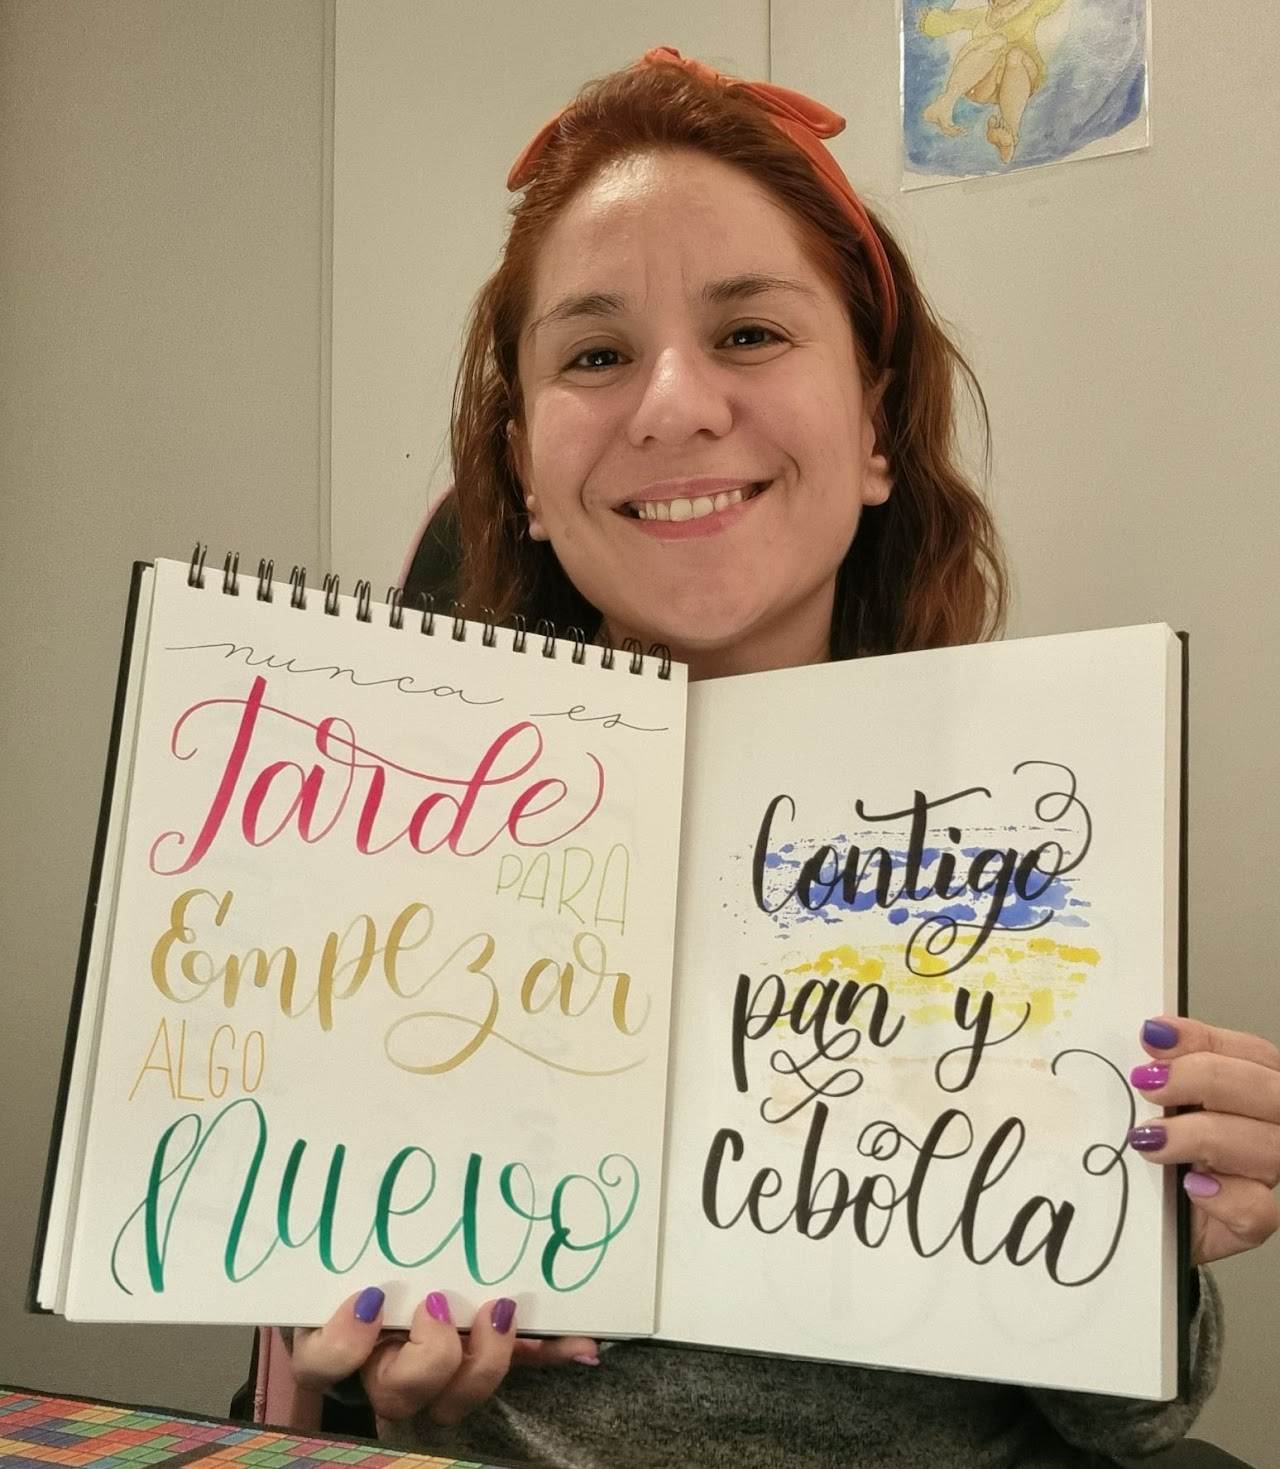 nunca es
Tarde
PARA
Empezar
ALGO
Nuevo
Contigo
pan y
cebolla